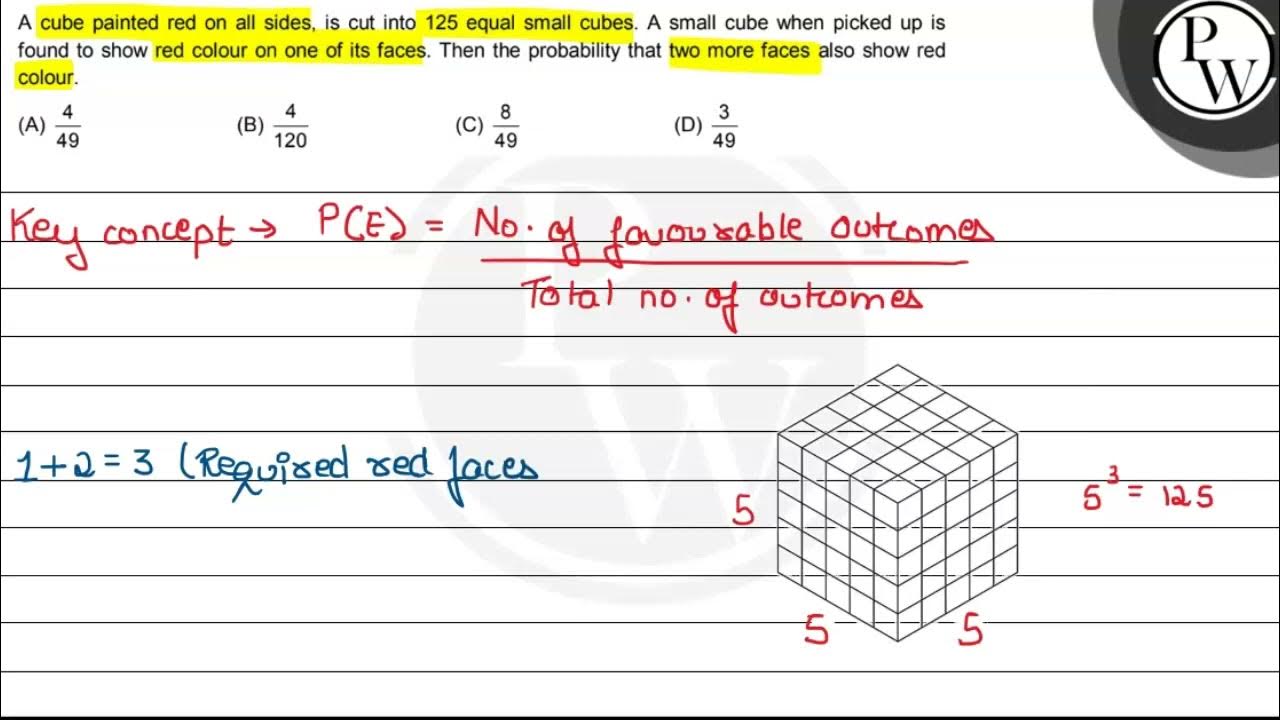 A cube painted red on all sides, is cut into 125 equal small cubes. A small cube when picked up is
found to show red colour on one of its faces. Then the probability that two more faces also show red
colour.
(A) 4/49 (B) 4/120 (C) 8/49 (D) 3/49
P
W
Key concept → P(E) = No. of favourable outcomes
Total no. of outcomes
1+2 = 3 (Required red faces
5
5³ = 125
5 5
P
W